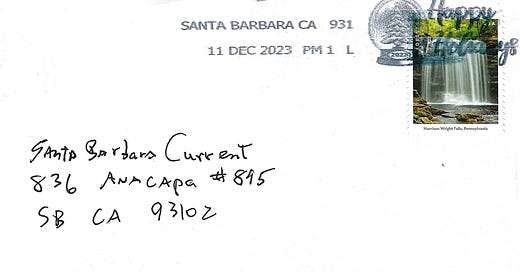 SANTA BARBARA CA 931
11 DEC 2023 PM 1 L
Happy
Holidays
2023
FOREVER USA
Harrison Wright Falls, Pennsylvania
Santa Barbara Current
836 ANACAPA #895
SB CA 93102